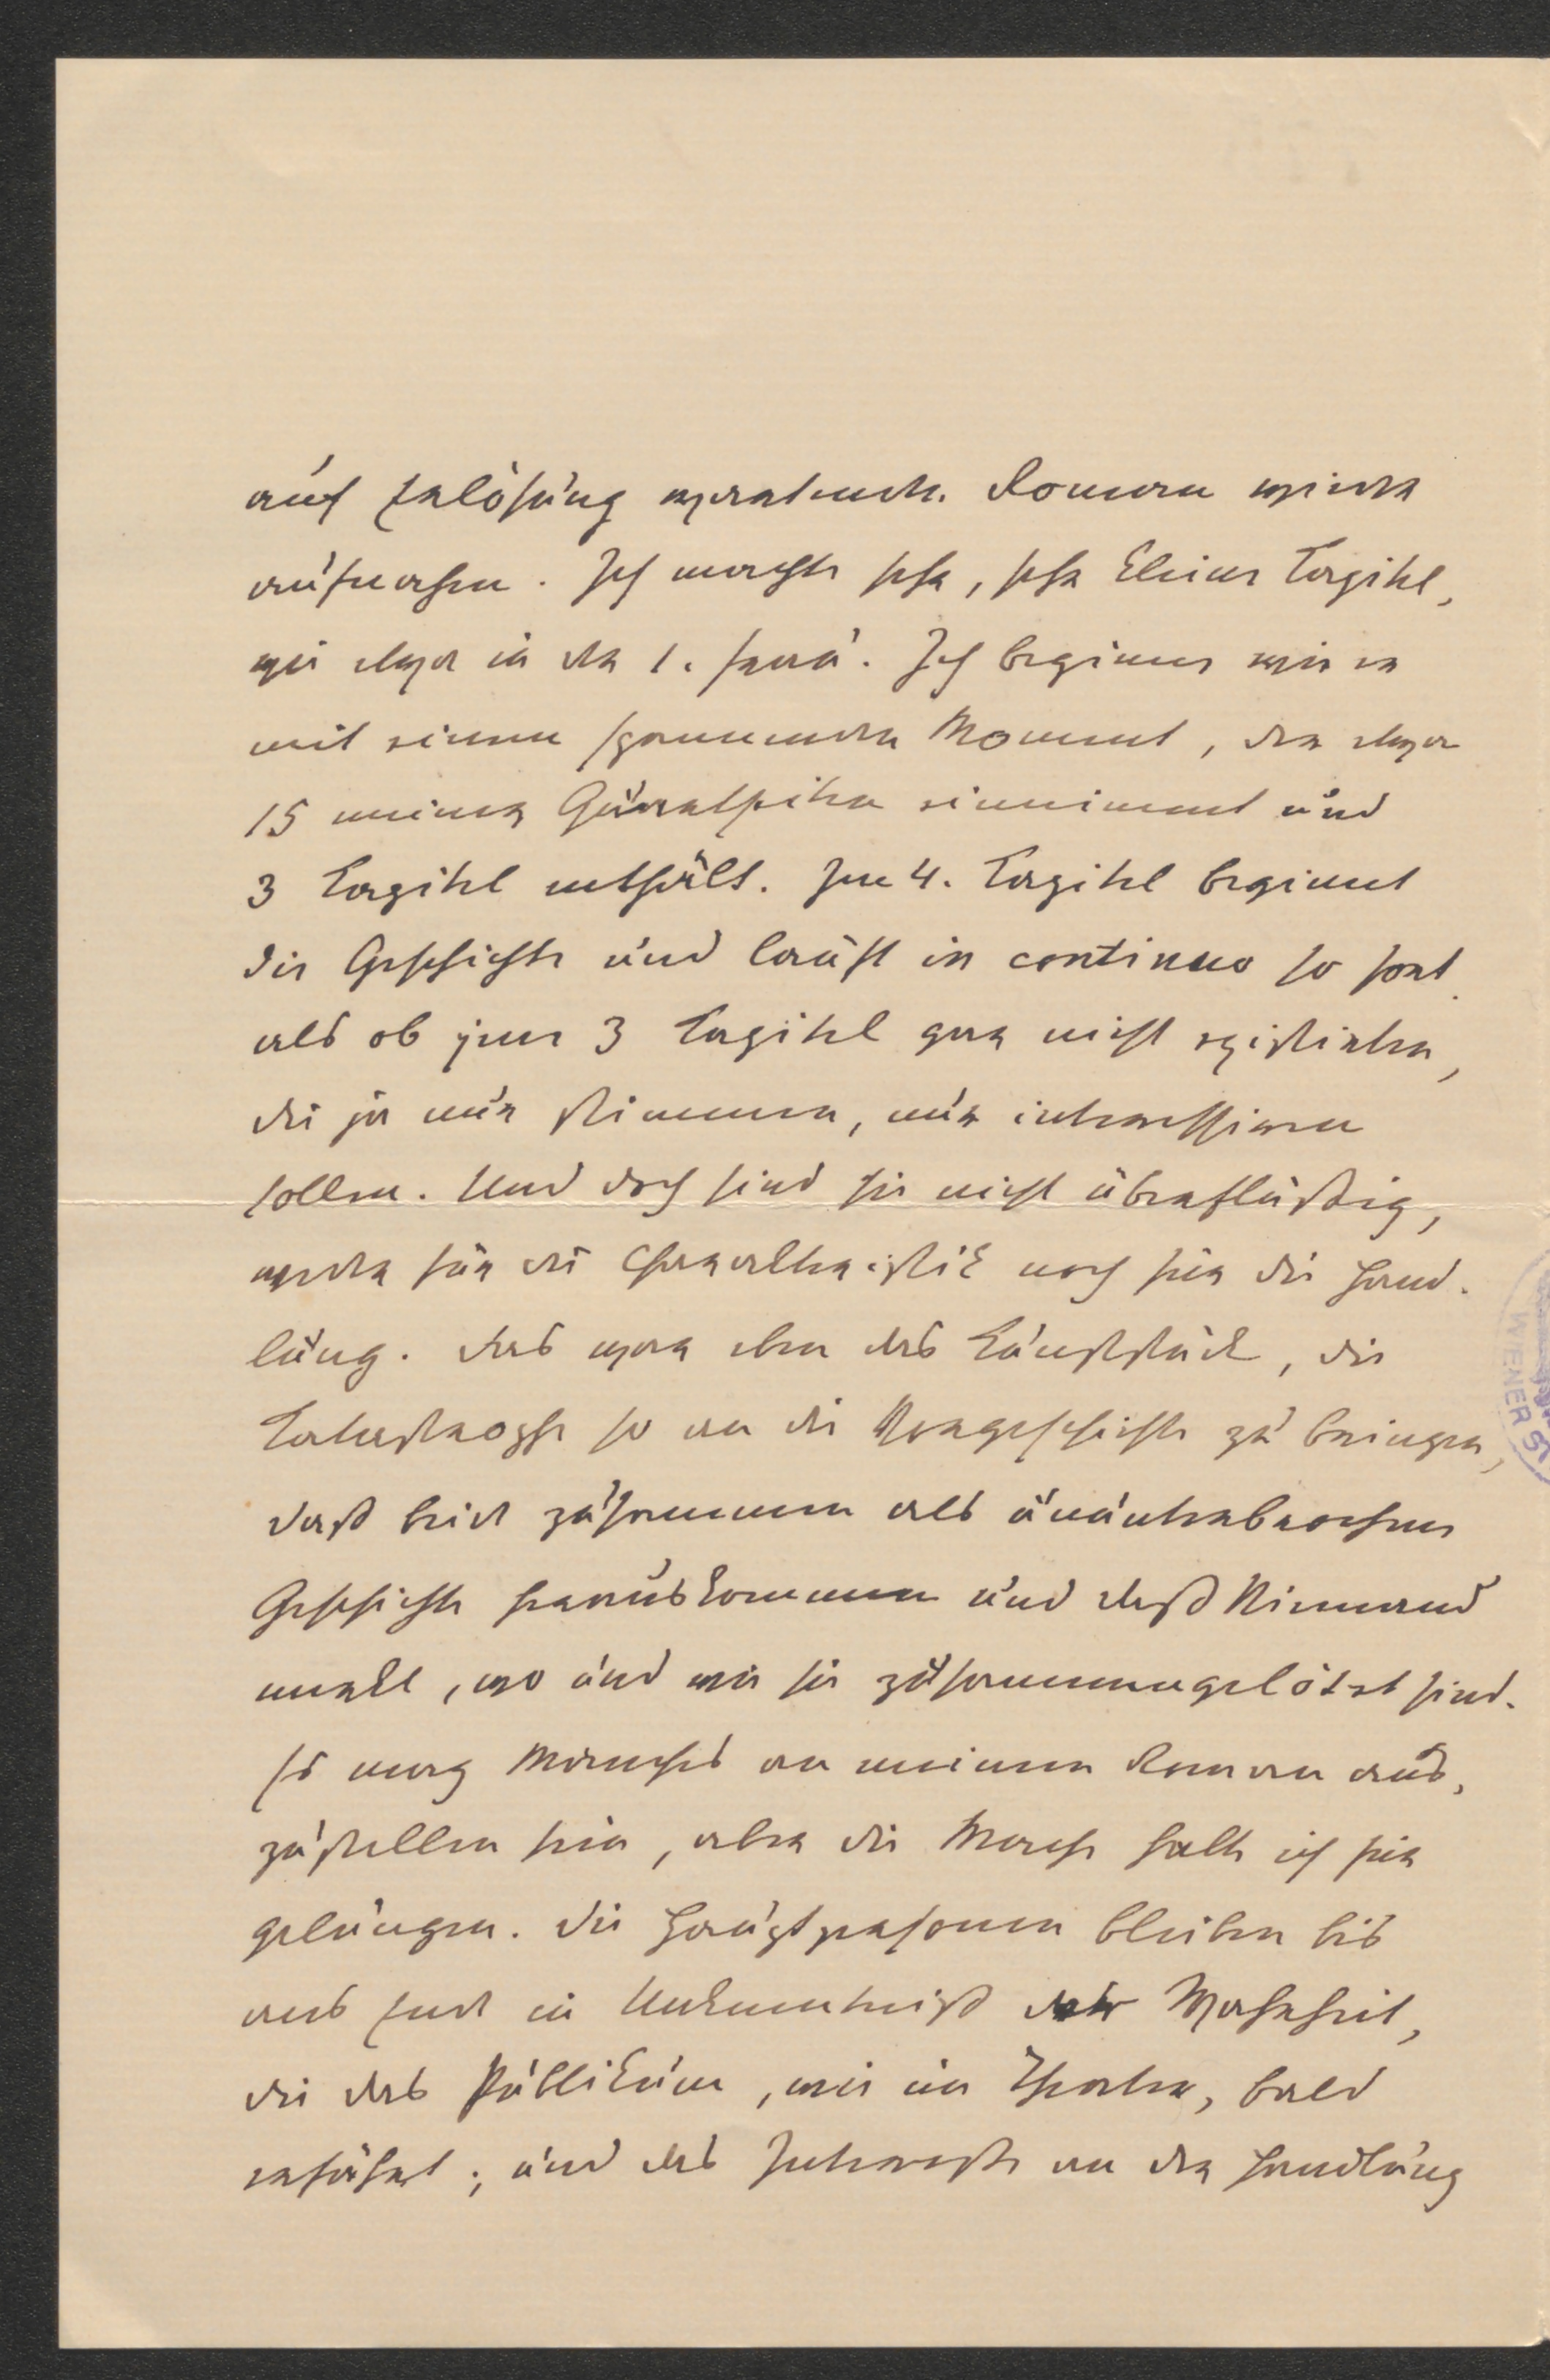 auf Erlösung wartende Roman wieder
aufnahm. Ich machte sehr, sehr kleine Capitel,
wie etwa in der 1. Frau. Ich beginne wieder
mit einem spannenden Moment, der etwa
15 meiner Quartseiten einnimmt und
3 Capitel enthält. Im 4. Capitel beginnt
die Geschichte und läuft in continuo so fort
als ob jene 3 Capitel gar nicht existirten,
die ja nur stimmen, nur interessiren
sollen. Und doch sind sie nicht überflüßig,
weder für die Charakteristik noch für die Hand-
lung. Das war eben das Kunststück, die
Katastrophe so an die Vorgeschichte zu bringen,
daß beide zusammen als ununterbrochene
Geschichte herauskommen und daß Niemand
merkt, wo und wie sie zusammengelötet sind.
Es mag Manches an meinem Roman aus-
zustellen sein, aber die Mache halte ich für
gelungen. Die Hauptpersonen bleiben bis
ans Ende in Unkenntniß der Wahrheit,
die das Publikum, wie im Theater, bald
erfährt; und das Interesse an der Handlung
WIENER